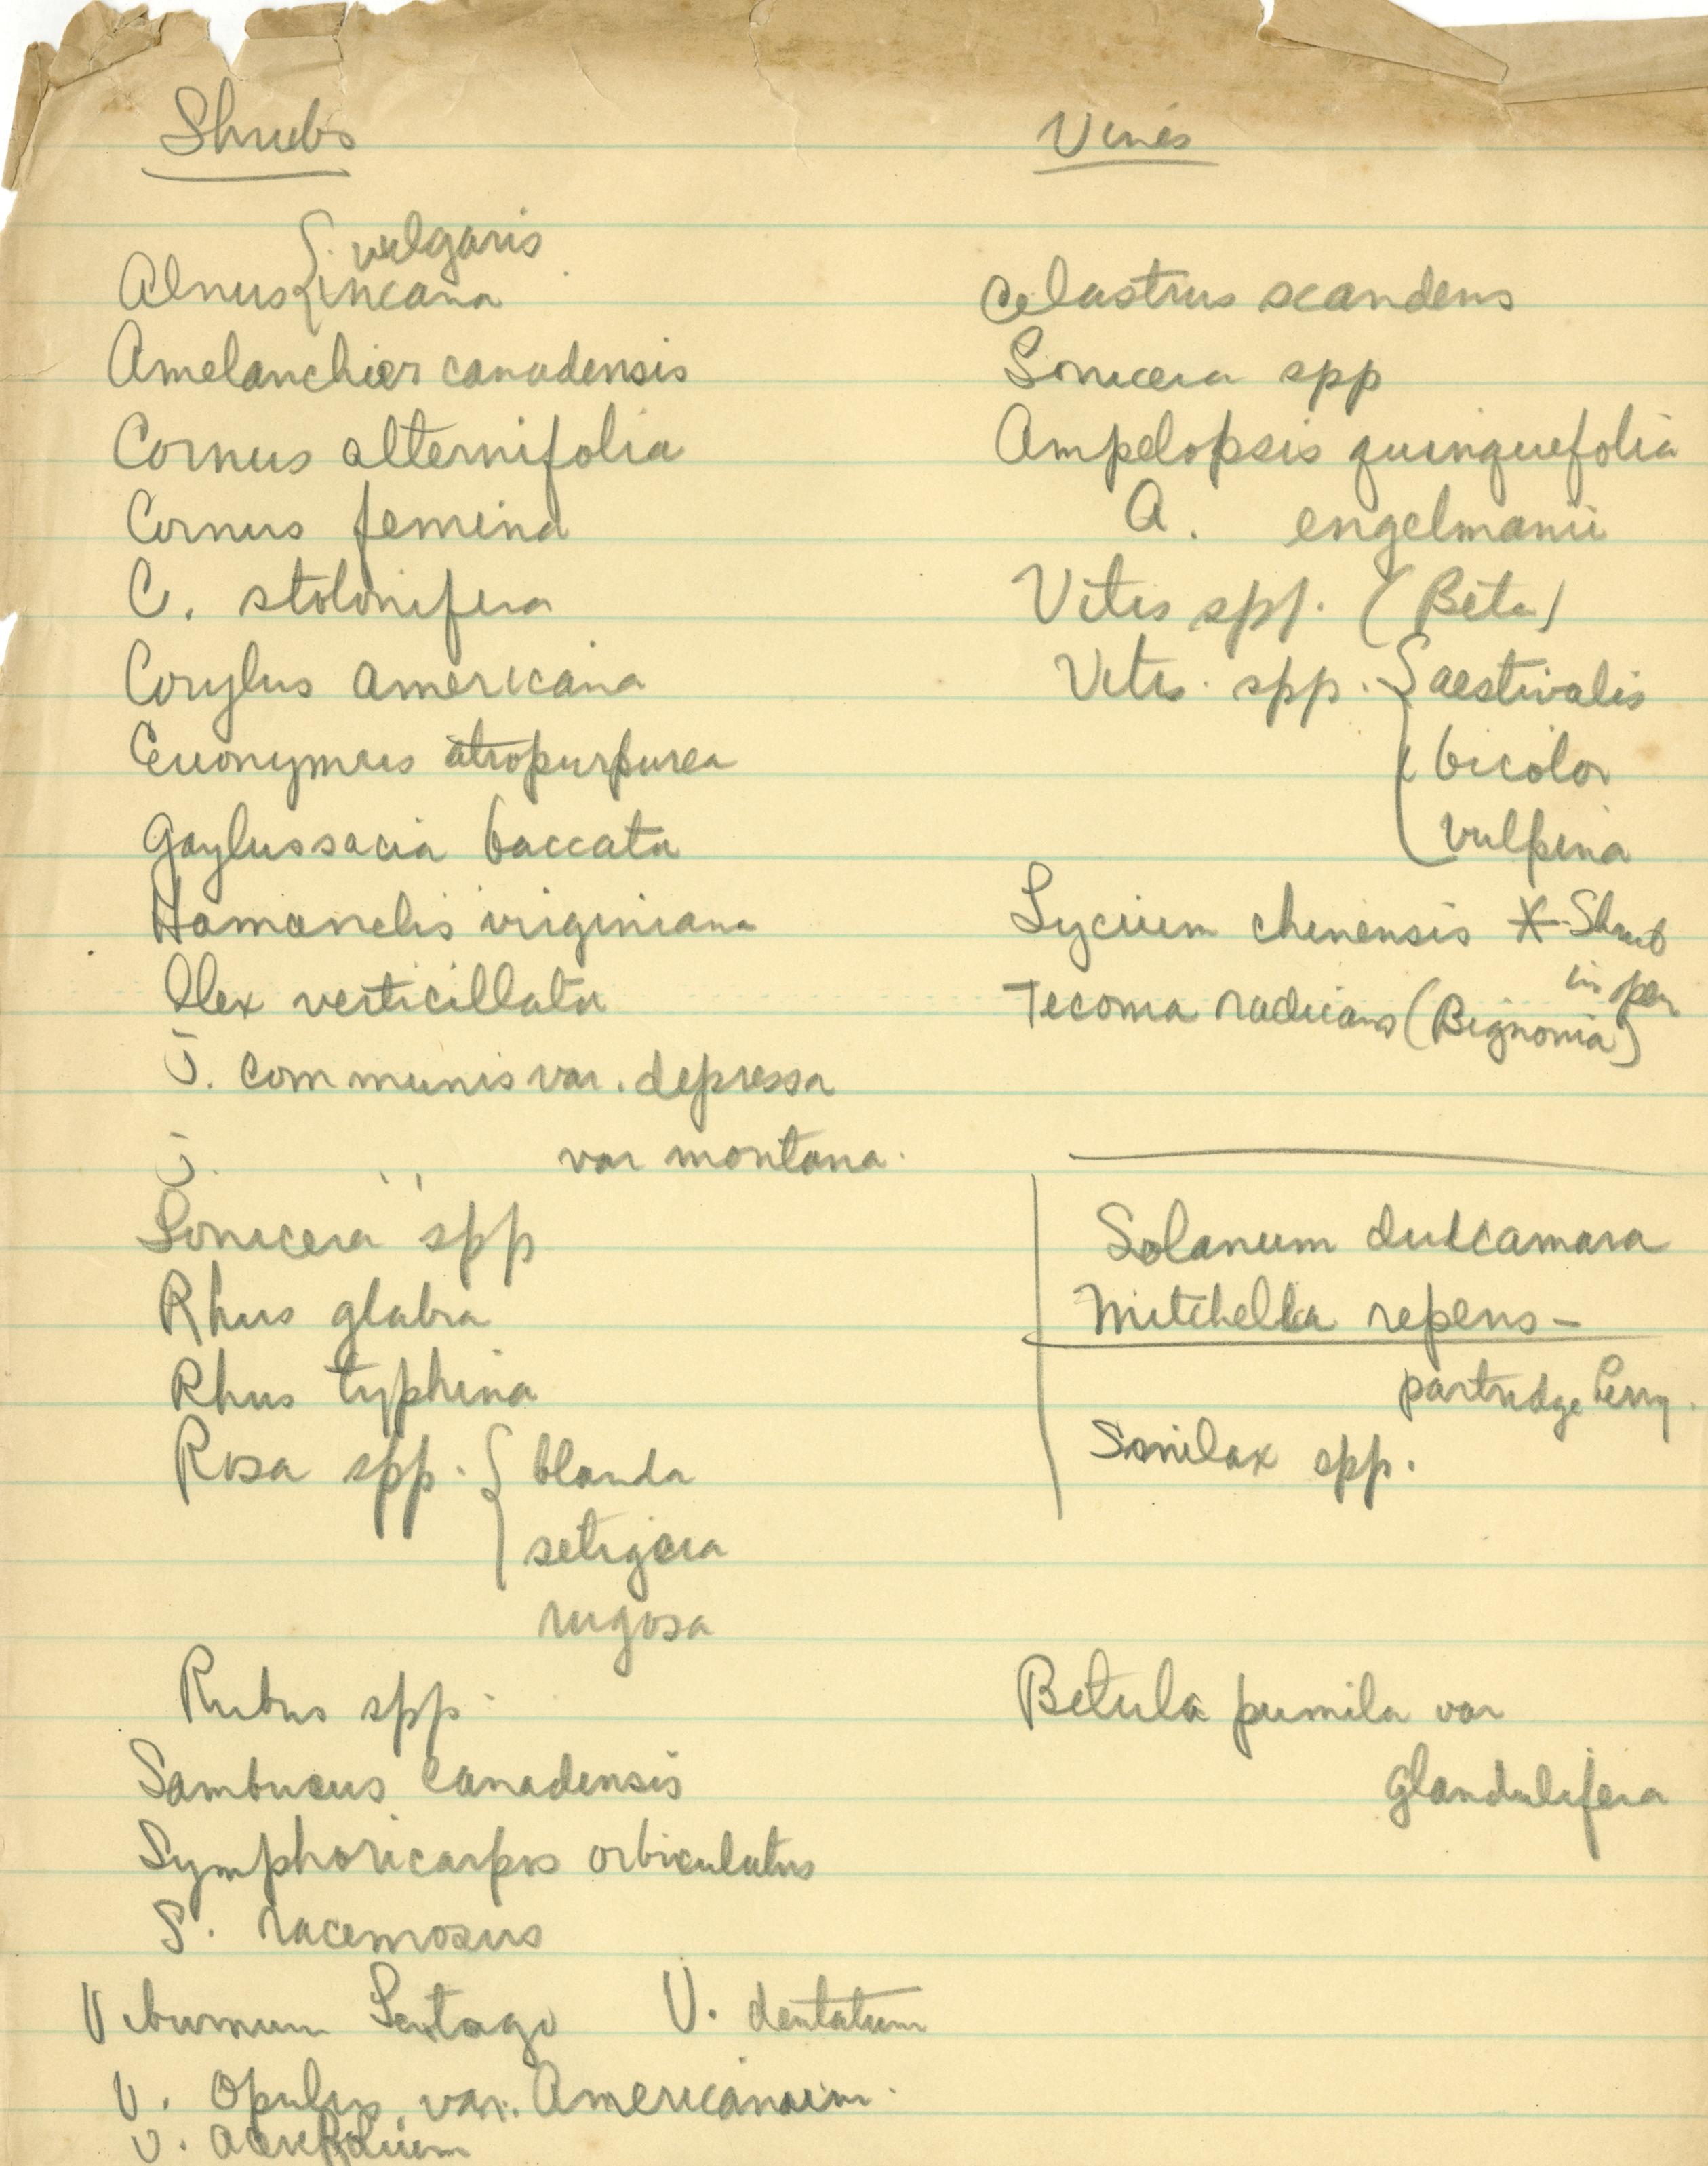 Shrubs
vulgaris
Alnus { incana
Amelanchier canadensis
Cornus alternifolia
Cornus femina
C. stolonifera
Corylus americana
Euonymus atropurpurea
Gaylussacia baccata
Hamamelis virginiana
Ilex verticillata
J. communis var. depressa
J. " var montana.
Lonicera spp
Rhus glabra
Rhus typhina
Rosa spp. { blanda
setigera
rugosa
Rubus spp.
Sambucus canadensis
Symphoricarpos orbiculatus
S. racemosus
Viburnum Lentago V. dentatum
V. Opulus var. Americanum.
V. acerifolium
Vines
Celastrus scandens
Lonicera spp
Ampelopsis quinquefolia
A. engelmanii
Vitis spp. (Beta)
Vitis. spp. { aestivalis
bicolor
vulpina
Lycium chinensis * Shrub
in open
Tecoma radicans (Bignonia)
Solanum dulcamara
Mitchella repens -
partridge berry.
Smilax spp.
Betula pumila var
glandulifera